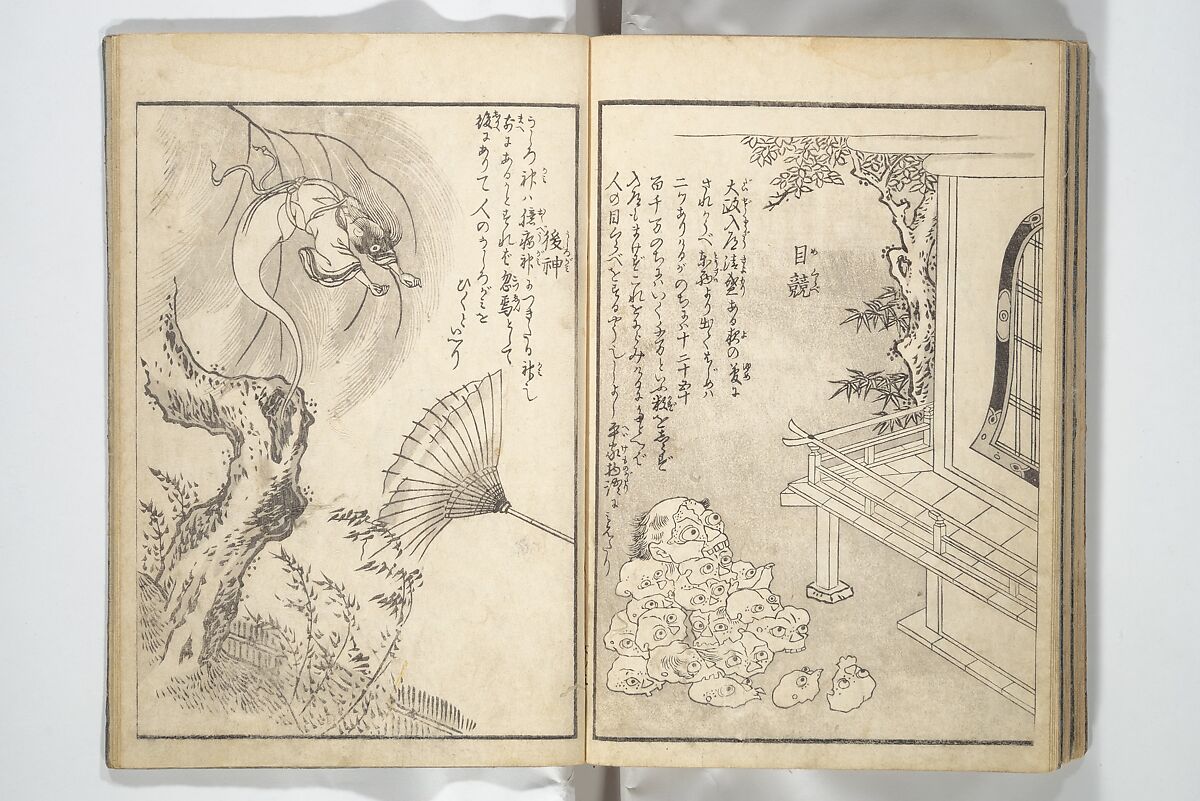 目競
大政入道清盛ある夜の夢に
されかうべ東西より出てはじめハ
二つありけるがのちにハ十二十五十
百千万のちにハいく千万といふ数をしらず
入道もまけずこれをにらみけるにたとへば
人の目くらべをするやう也しとかや平家物語にみえたり
後神
うしろ神ハ臆病神につきたる神也
前にあるかとすれバ忽焉として
後にありて人のうしろがミを
ひくといへり